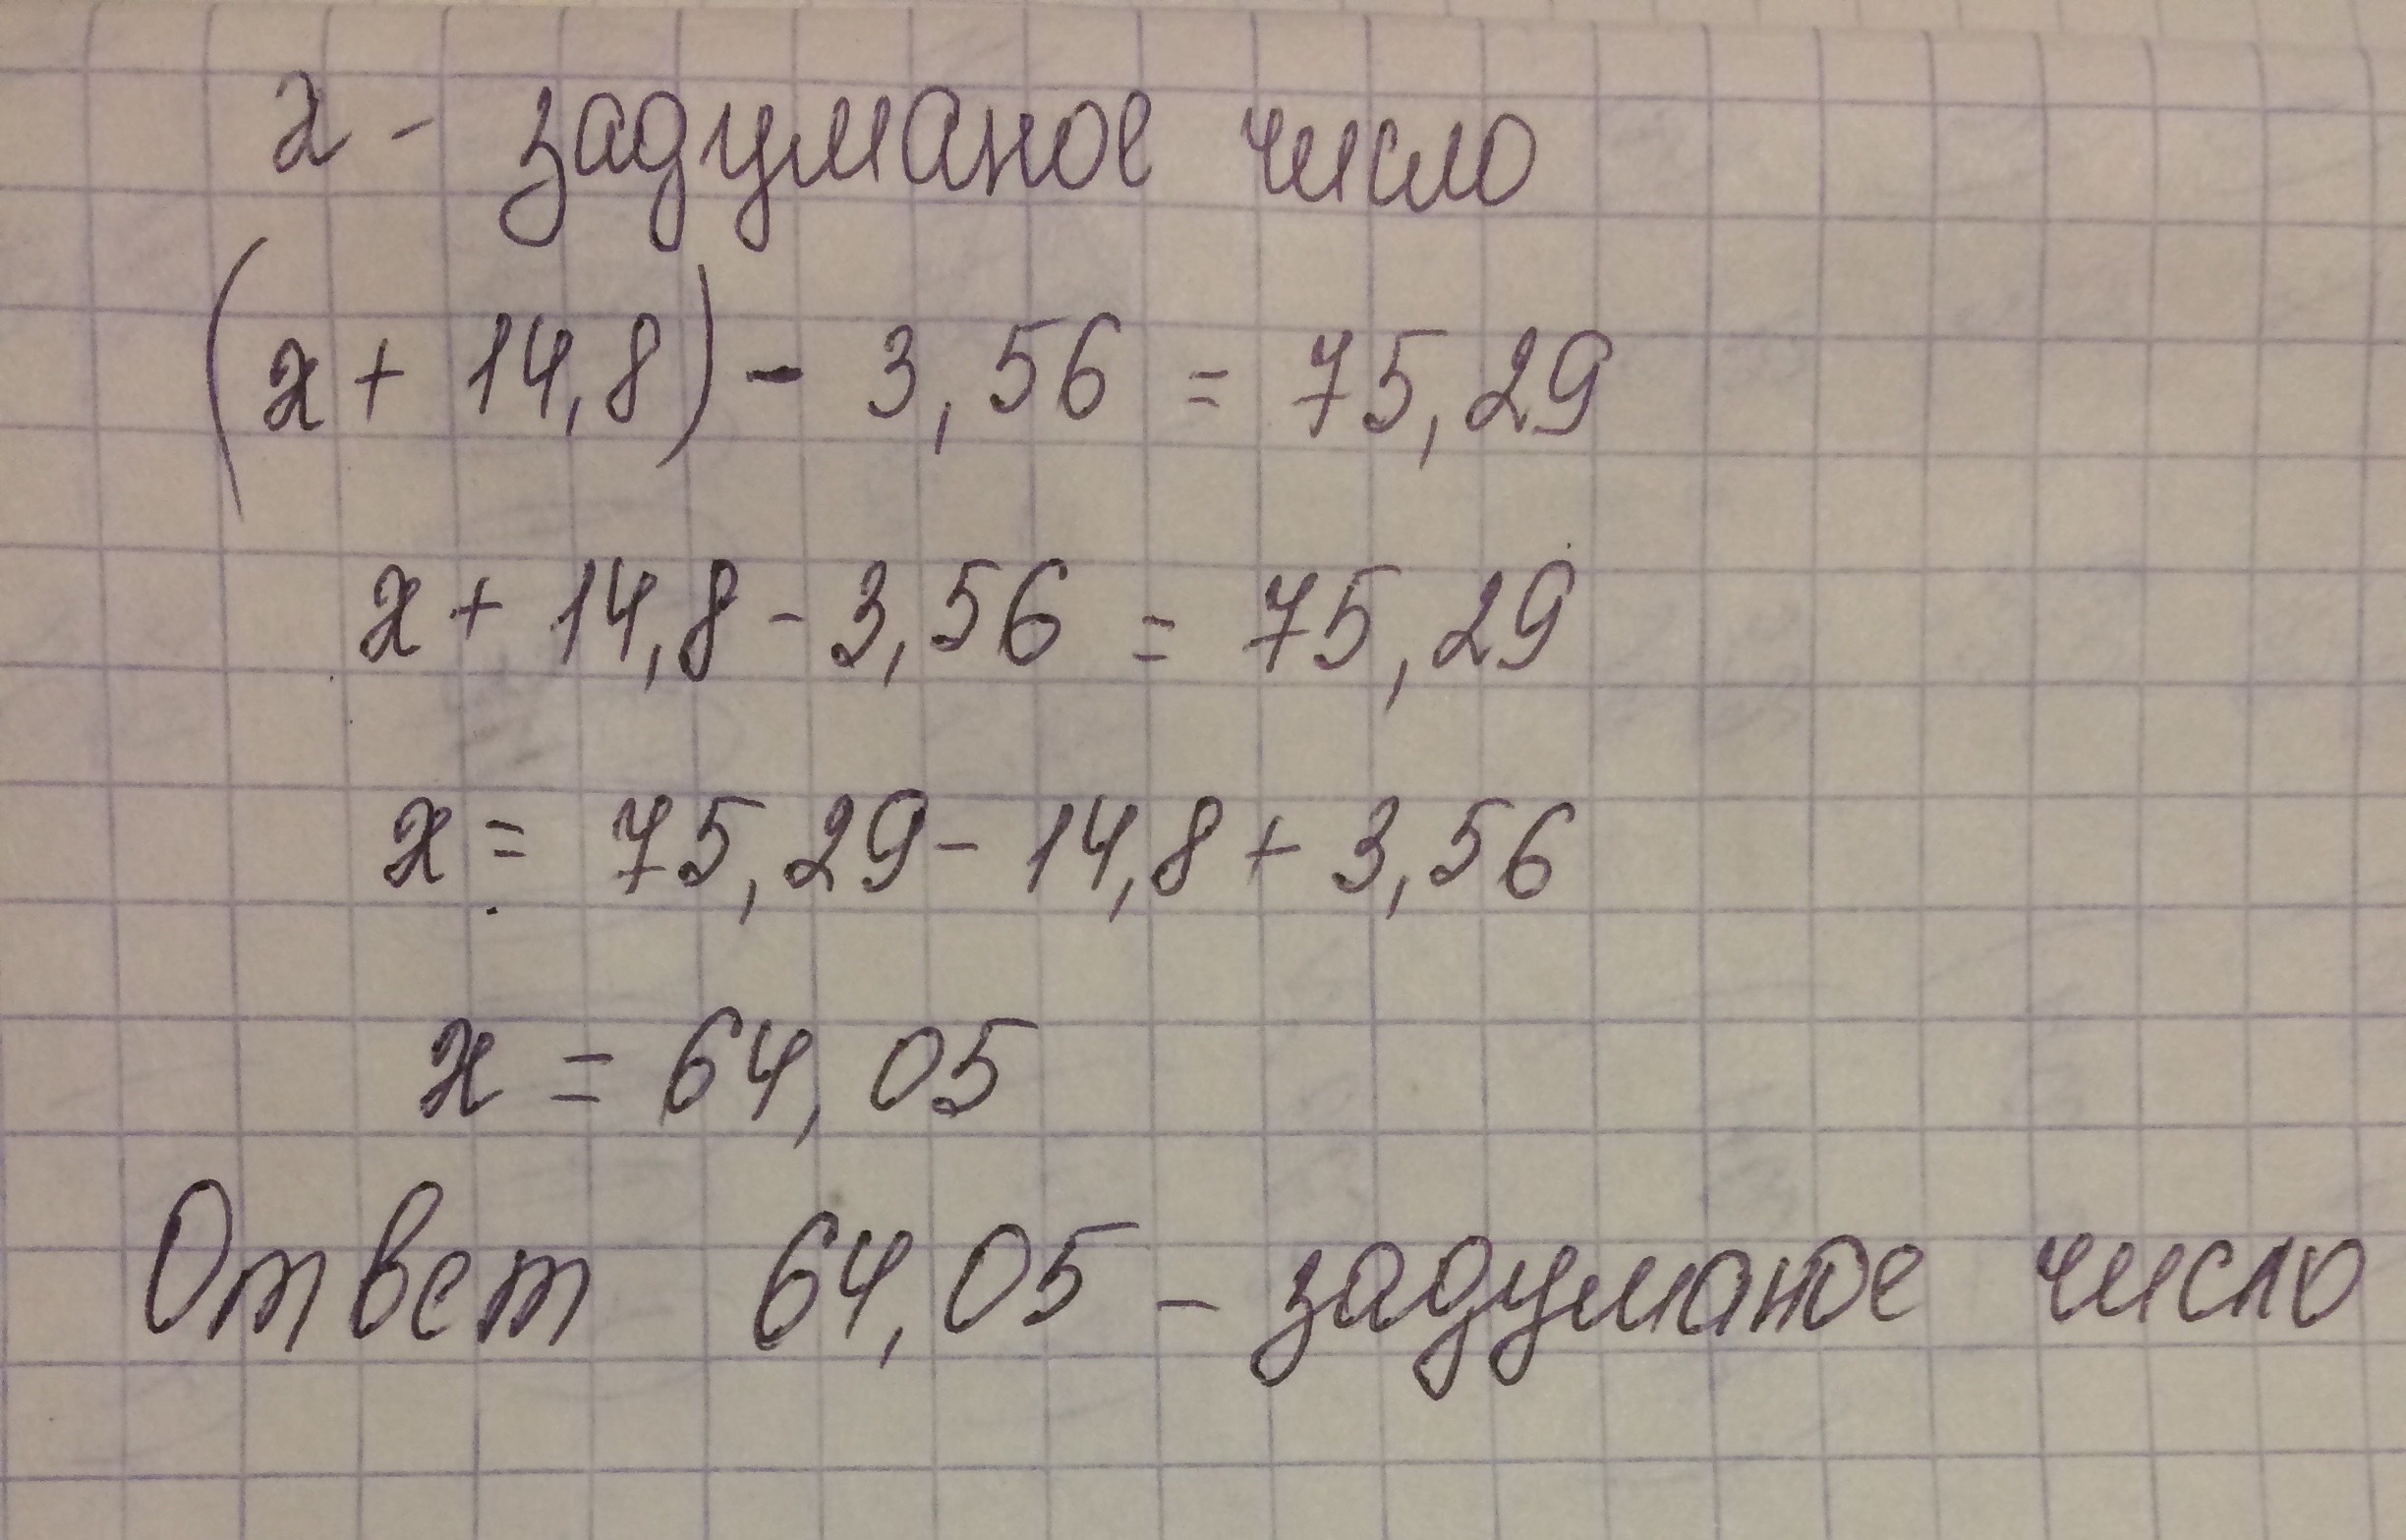 x - задуманое число
(x + 14,8) - 3,56 = 75,29
x + 14,8 - 3,56 = 75,29
x = 75,29 - 14,8 + 3,56
x = 64,05
Ответ 64,05 - задуманое число